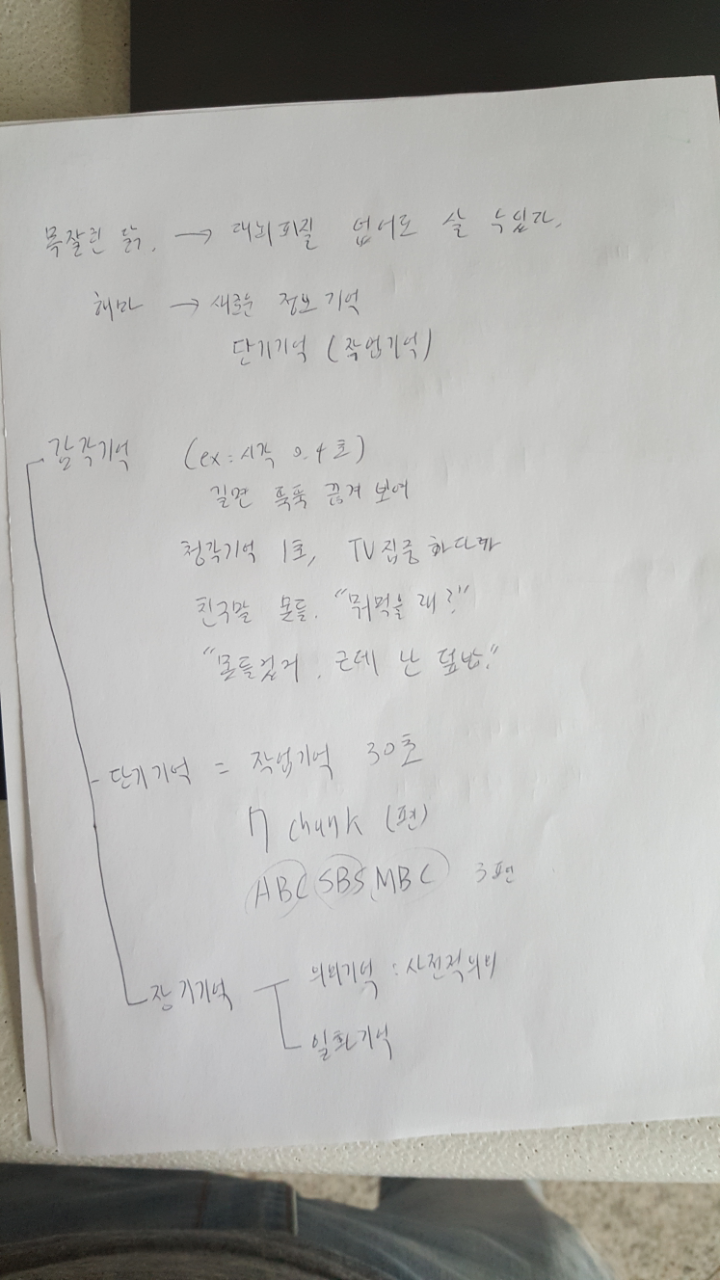 목잘린 닭. → 대뇌피질 없어도 살 수있다.
해마 → 새로운 정보 기억
단기기억 (작업기억)
감각기억 (ex: 시각 0.4초)
길면 뚝뚝 끊겨 보여
청각기억 1초, TV집중 하다가
친구말 못들. "뭐먹을래?"
"못들었어. 근데 난 덮밥."
단기기억 = 작업기억 30초
7 chunk (편)
ABC SBS MBC 3편
장기기억 의미기억 : 사전적의미
일화기억